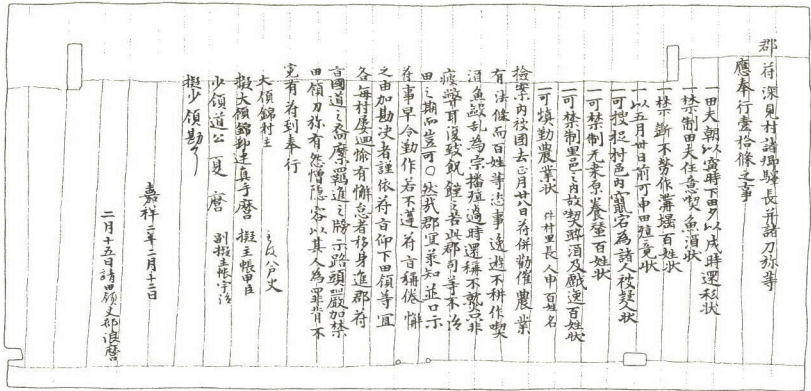 郡符深見村諸郷驛長并諸刀弥等
應奉行壹拾條之事
一田夫朝以寅時下田夕以戌時還私状
禁制田夫任意喫魚酒状
一禁断不労作溝堰百姓状
一以五月卅日前可申田殖竟状
一可捜捉村邑内竄宕為諸人被疑人状
一可禁制无桒原養蚕百姓状
一可禁制里邑之内故喫酔酒及戯逸百姓状
一可填勤農業状 件村里長人申百姓名
検案内被国去正月廿八日符併勧催農業
有法條而百姓等恣事逸遊不耕作喫
酒魚殴乱為宗播殖過時還稱不熟只非
疲弊耳復致飢饉之苦此郡司等不治
田之期而豈可○然哉郡宜承知並口示
符事早令勤作若不遵符旨稱倦懈
之由加勘决者謹依符旨仰下田領等宜
各毎村屡廻愉有懈怠者移身進郡符
旨國道之裔縻羈進之牓示路頭嚴加禁
田領刀弥有怨憎隠容以其人為罪背不
寛有符到奉行
大領錦村主 主政八戸史
擬大領錦部連真手麿 擬主帳甲臣
少領道公夏麿 副擬主帳宇治
擬少領勘了
嘉祥二年二月十二日
二月十五日請田領丈部浪麿